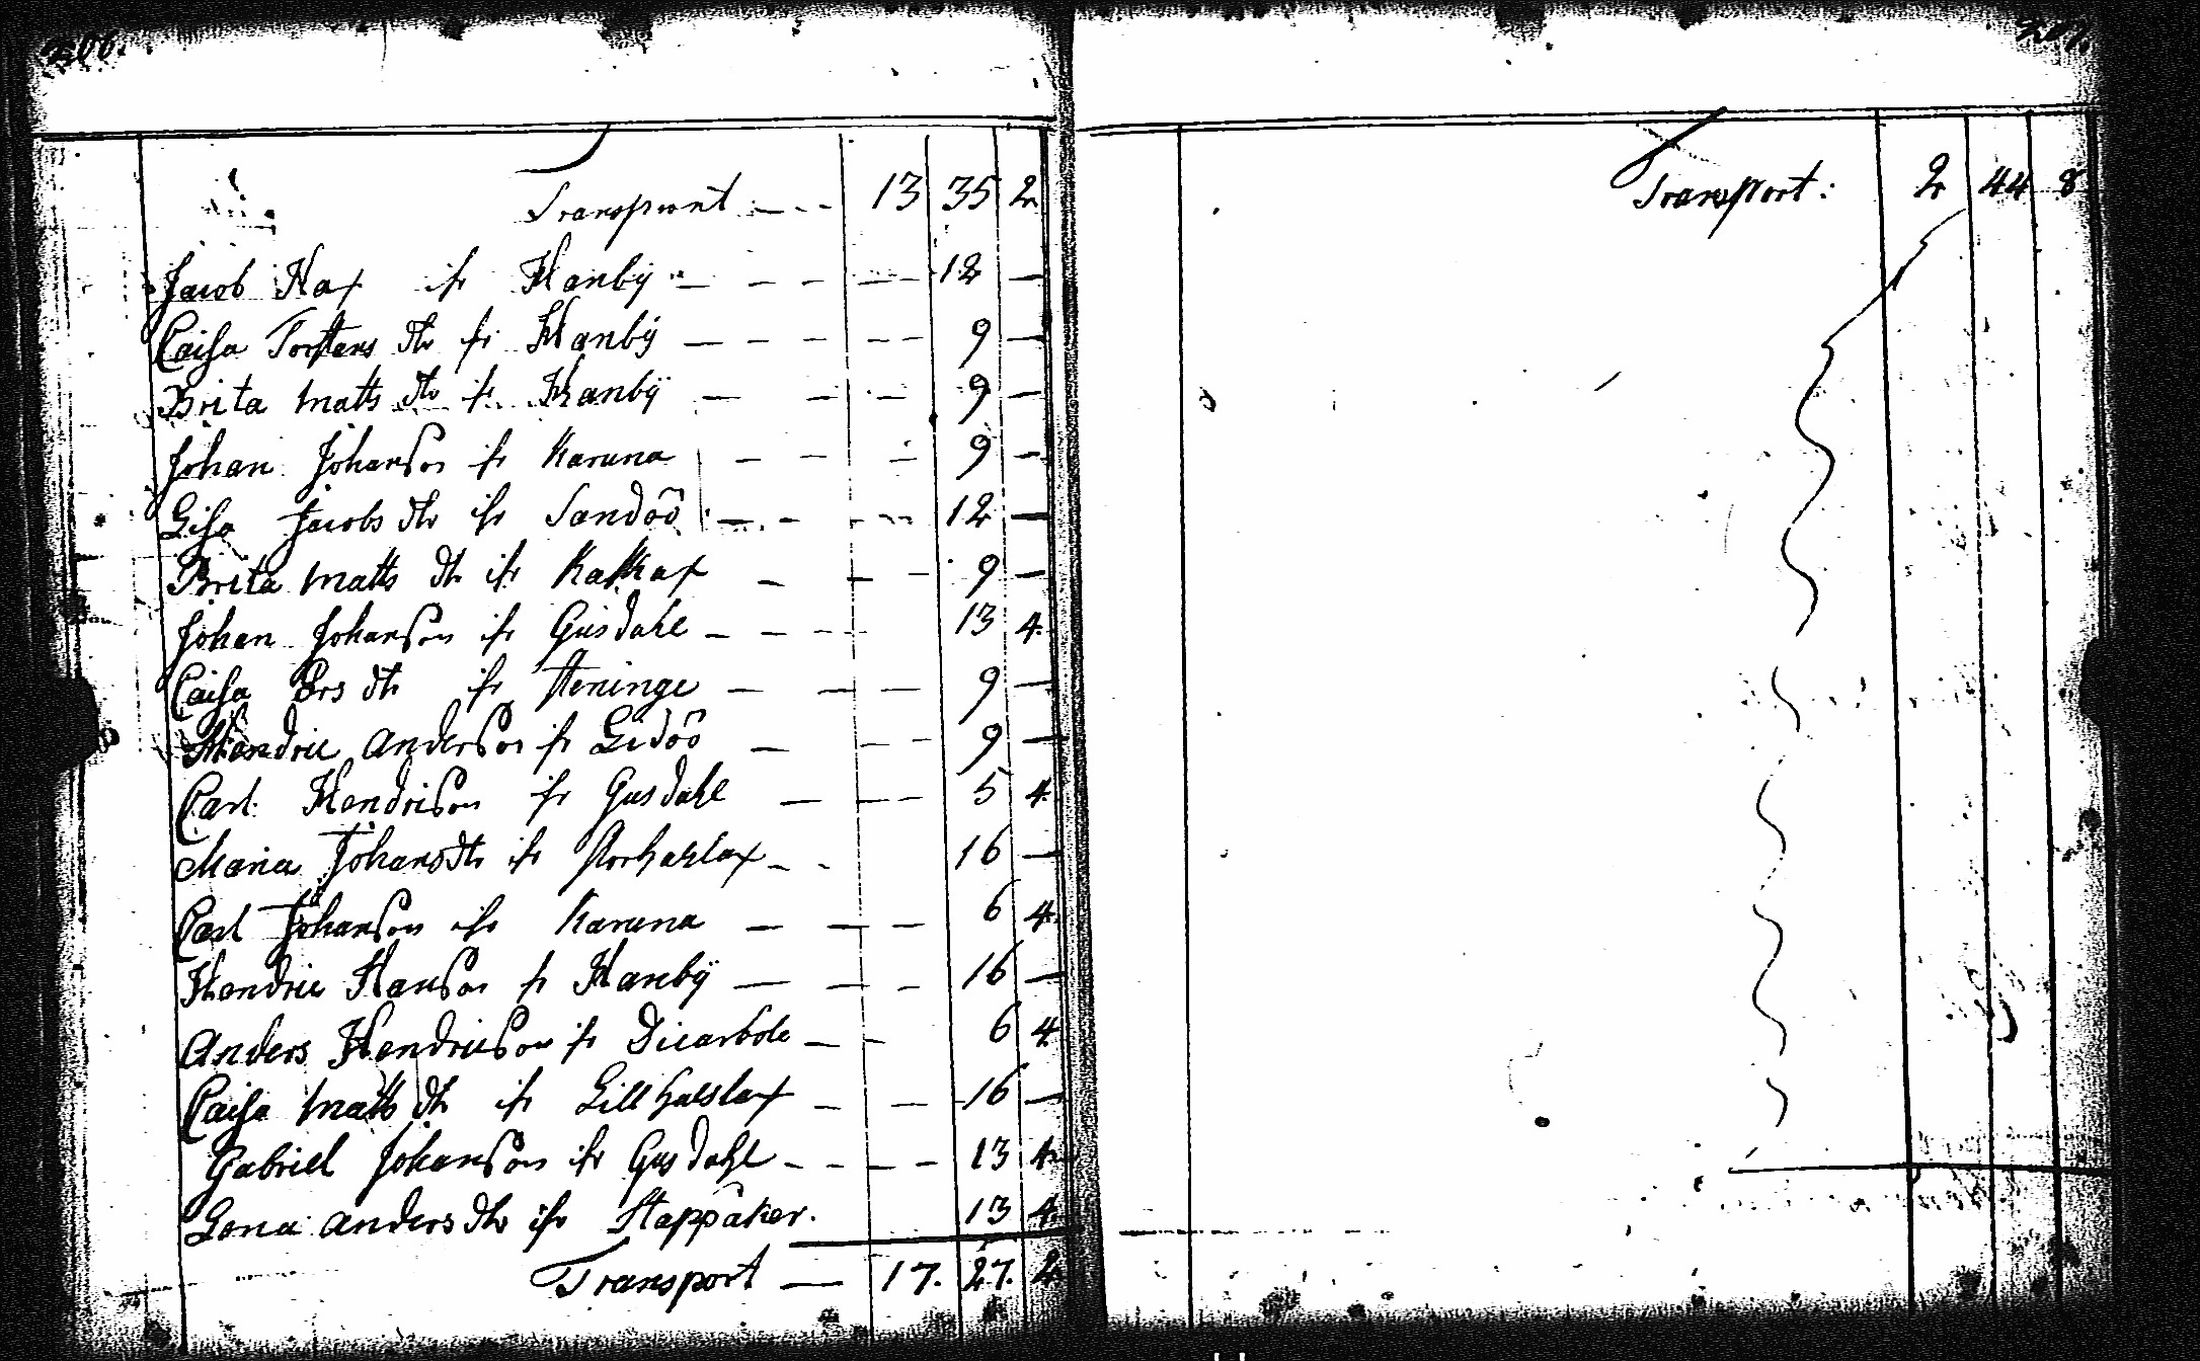 206.
Transport - - - 13 35 2
Jacob Hax ifr Hanby - - - - - 12 —
Caisa Torstens dtr fr Hanby — — — — — — 9 —
Brita Matts dtr fr Hanby — — - — 9 —
Johan Johanson fr Karuna — — — 9 —
Lisa Jacobs dtr ifr Sandöö — - - - - 12 —
Brita Matts dtr ifr Kakkax — — - 9 —
Johan Johanson ifr Gusdahl — - - - 13 4
Caisa Ers dtr ifr Heninge — — — 9 —
Hendric Anderson fr Lidöö — — — 9 —
Carl Hendrison fr Gusdahl — — — 5 4
Maria Johansdtr ifr Norhaslax - - 16 —
Carl Johanson ifr Karuna — — — 6 4
Hendric Hanson fr Hanby — — — 16 —
Anders Hendricson fr Dicarbole — - 6 4
Caisa Matts dtr ifr Lillhalslax — — 16 —
Gabriel Johanson ifr Gusdahl - - — - 13 4
Lena Anders dtr ifr Stappåker. 13 4
Transport — 17. 27. 2
207.
Transport: 2 44 8